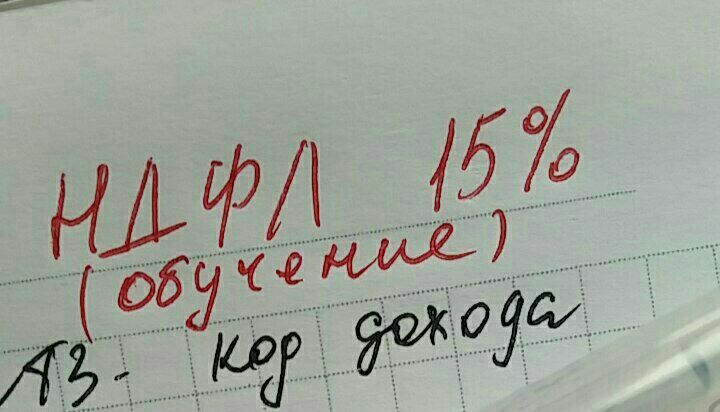 НДФЛ 15%
(обучение)
ДЗ- код дохода